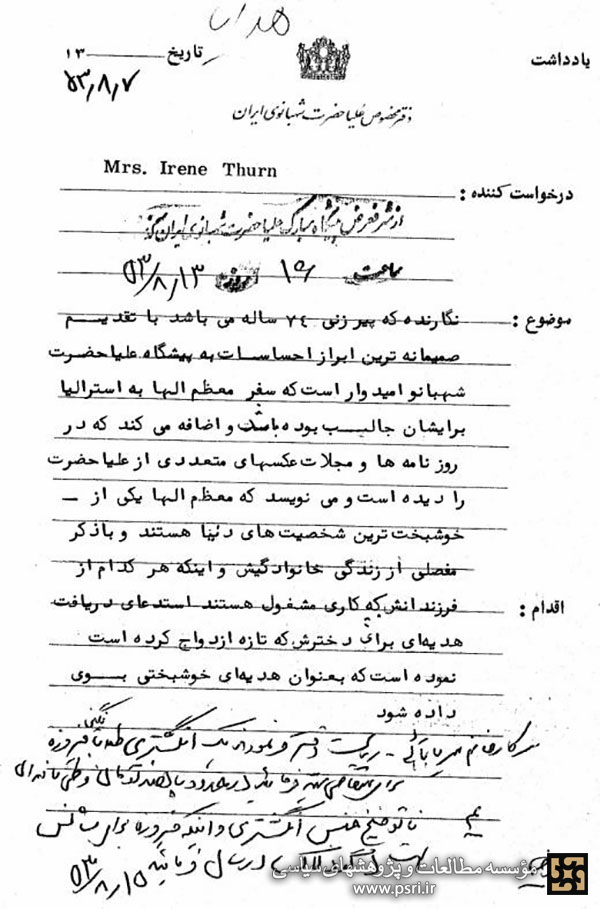 هدایا
یادداشت
تاریخ ۱۳
۵۳٫۸٫۷
دفتر مخصوص علیاحضرت شهبانوی ایران
Mrs. Irene Thurn
درخواست کننده :
از شرفعرض پیشگاه مبارک علیاحضرت شهبانوی ایران گذشت
ساعت ۱۵ روز ۵۳/۸/۱۳
موضوع : نگارنده که پیر زنی ۷٤ ساله می باشد با تقدیم
صمیمانه ترین ابراز احساسات به پیشگاه علیاحضرت
شهبانو امیدوار است که سفر معظم الها به استرالیا
برایشان جالب بوده باشد و اضافه می کند که در
روزنامه ها و مجلات عکسهای متعددی از علیاحضرت
را دیده است و می نویسد که معظم الها یکی از –
خوشبخت ترین شخصیت های دنیا هستند و باذکر
مفصلی از زندگی خانوادگیش و اینکه هر کدام از
اقدام : فرزندانش که کاری مشغول هستند استدعای دریافت
هدیه‌ای برای دخترش که تازه ازدواج کرده است
نموده است که بعنوان هدیه‌ای خوشبختی بـوی
داده شود
سرکار خانم انگشتری طلا با نگین فیروزه
برای متقاضی تهیه فرمائید
با توضیح جنس انگشتری و اینکه فیروزه برای شانس
ارسال فرمائید
۵۳/۸/۱۵
مؤسسه مطالعات و پژوهشهای سیاسی
www.psri.ir